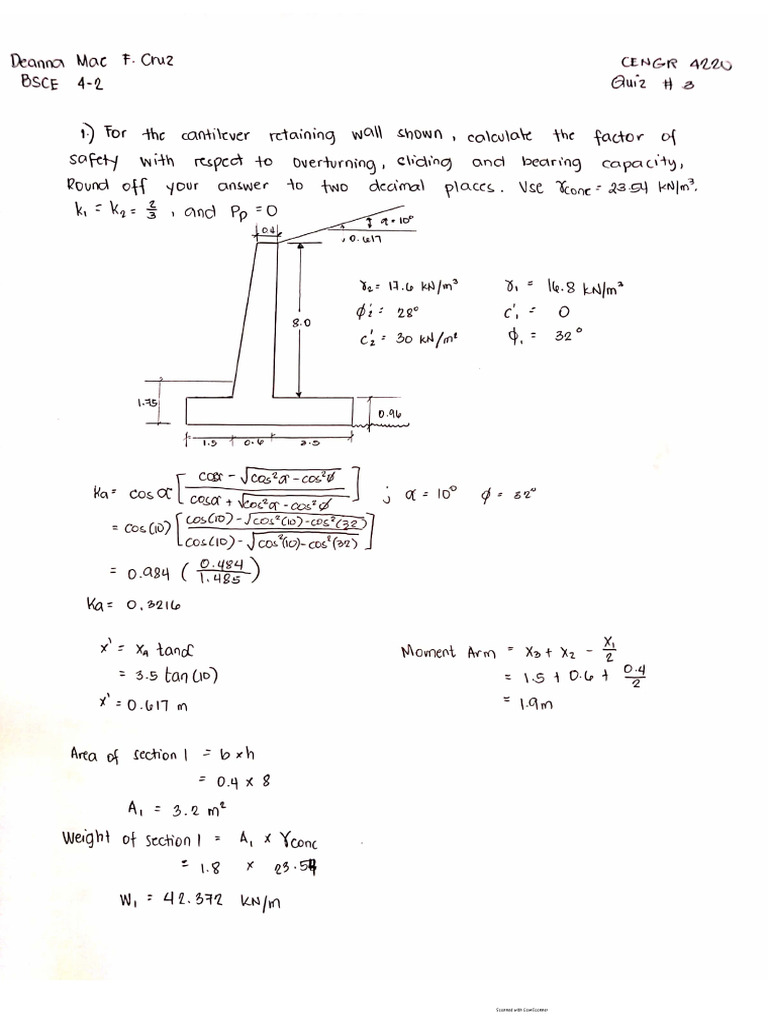 Deanna Mac F. Cruz
CENGR 4220
BSCE 4-2
Quiz # 3
1.) For the cantilever retaining wall shown, calculate the factor of
safety with respect to overturning, sliding and bearing capacity,
Round off your answer to two decimal places. Use γconc = 23.54 kN/m³.
k₁ = k₂ = 2/3, and Pp = 0
0.4
α = 10°
0.617
γ₂ = 17.6 kN/m³
γ₁ = 16.8 kN/m³
ϕ'₂ = 28°
c'₁ = 0
8.0
c'₂ = 30 kN/m²
ϕ₁ = 32°
1.75
0.96
1.5
0.6
3.5
Ka = cos α [ cosα - √cos²α - cos²ϕ / cosα + √cos²α - cos²ϕ ] ; α = 10° ϕ = 32°
= cos(10) [ cos(10) - √cos²(10) - cos²(32) / cos(10) - √cos²(10) - cos²(32) ]
= 0.984 ( 0.484 / 1.485 )
Ka = 0.3216
x' = x₄ tanα
Moment Arm = x₃ + x₂ - x₁/2
= 3.5 tan(10)
= 1.5 + 0.6 + 0.4/2
x' = 0.617 m
= 1.9m
Area of section 1 = b × h
= 0.4 × 8
A₁ = 3.2 m²
Weight of section 1 = A₁ × γconc
= 1.8 × 23.54
W₁ = 42.372 kN/m
Scanned with CamScanner